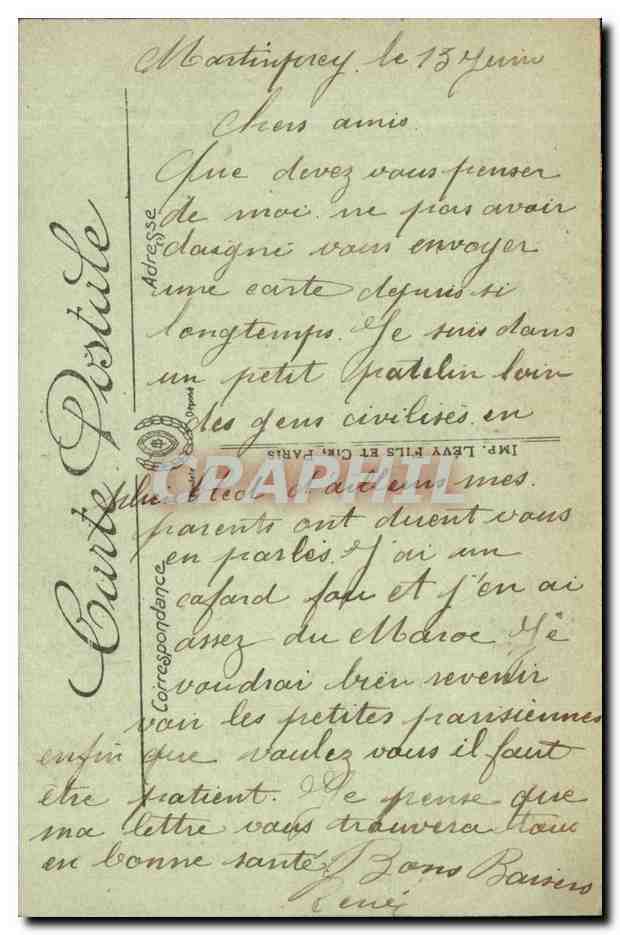 Martimprey le 13 Juin
Chers amis.
Que devez vous penser
de moi. ne pas avoir
daigné vous envoyer
une carte depuis si
longtemps. Je suis dans
un petit patelin loin
des gens civilisés en
plein bled d'ailleurs mes.
parents ont duent vous
en parlés. J'ai un
cafard fou et j'en ai
assez du Maroc Je
voudrai bien revenir
voir les petites parisiennes
enfin que voulez vous il faut
être patient. Je pense que
ma lettre vous trouvera tous
en bonne santé Bons Baisers
René
Carte Postale
Adresse
Correspondance
Modèle Déposé
IMP. LÉVY FILS ET CIE, PARIS
CPAPHIL